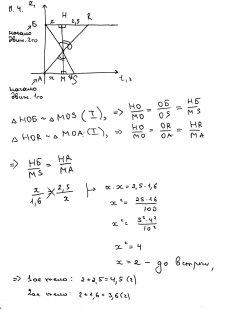 и. 4.
Б
x H 2,5 R
начало
движ. 2го
O
A x M S t, z
начало
движ. 1го
△HOБ ~ △MOS (I), => HO/MO = OБ/OS = HБ/MS
△HOR ~ △MOA (I), => HO/MO = OR/OA = HR/MA
=> HБ/MS = HR/MA
x/1,6 = 2,5/x x·x = 2,5·1,6
x² = 25·16/100
x² = 5²·4²/10²
x² = 4
x = 2 - до встречи,
=> 1ое тело: 2+2,5=4,5 (г)
2ое тело: 2+1,6=3,6 (г)